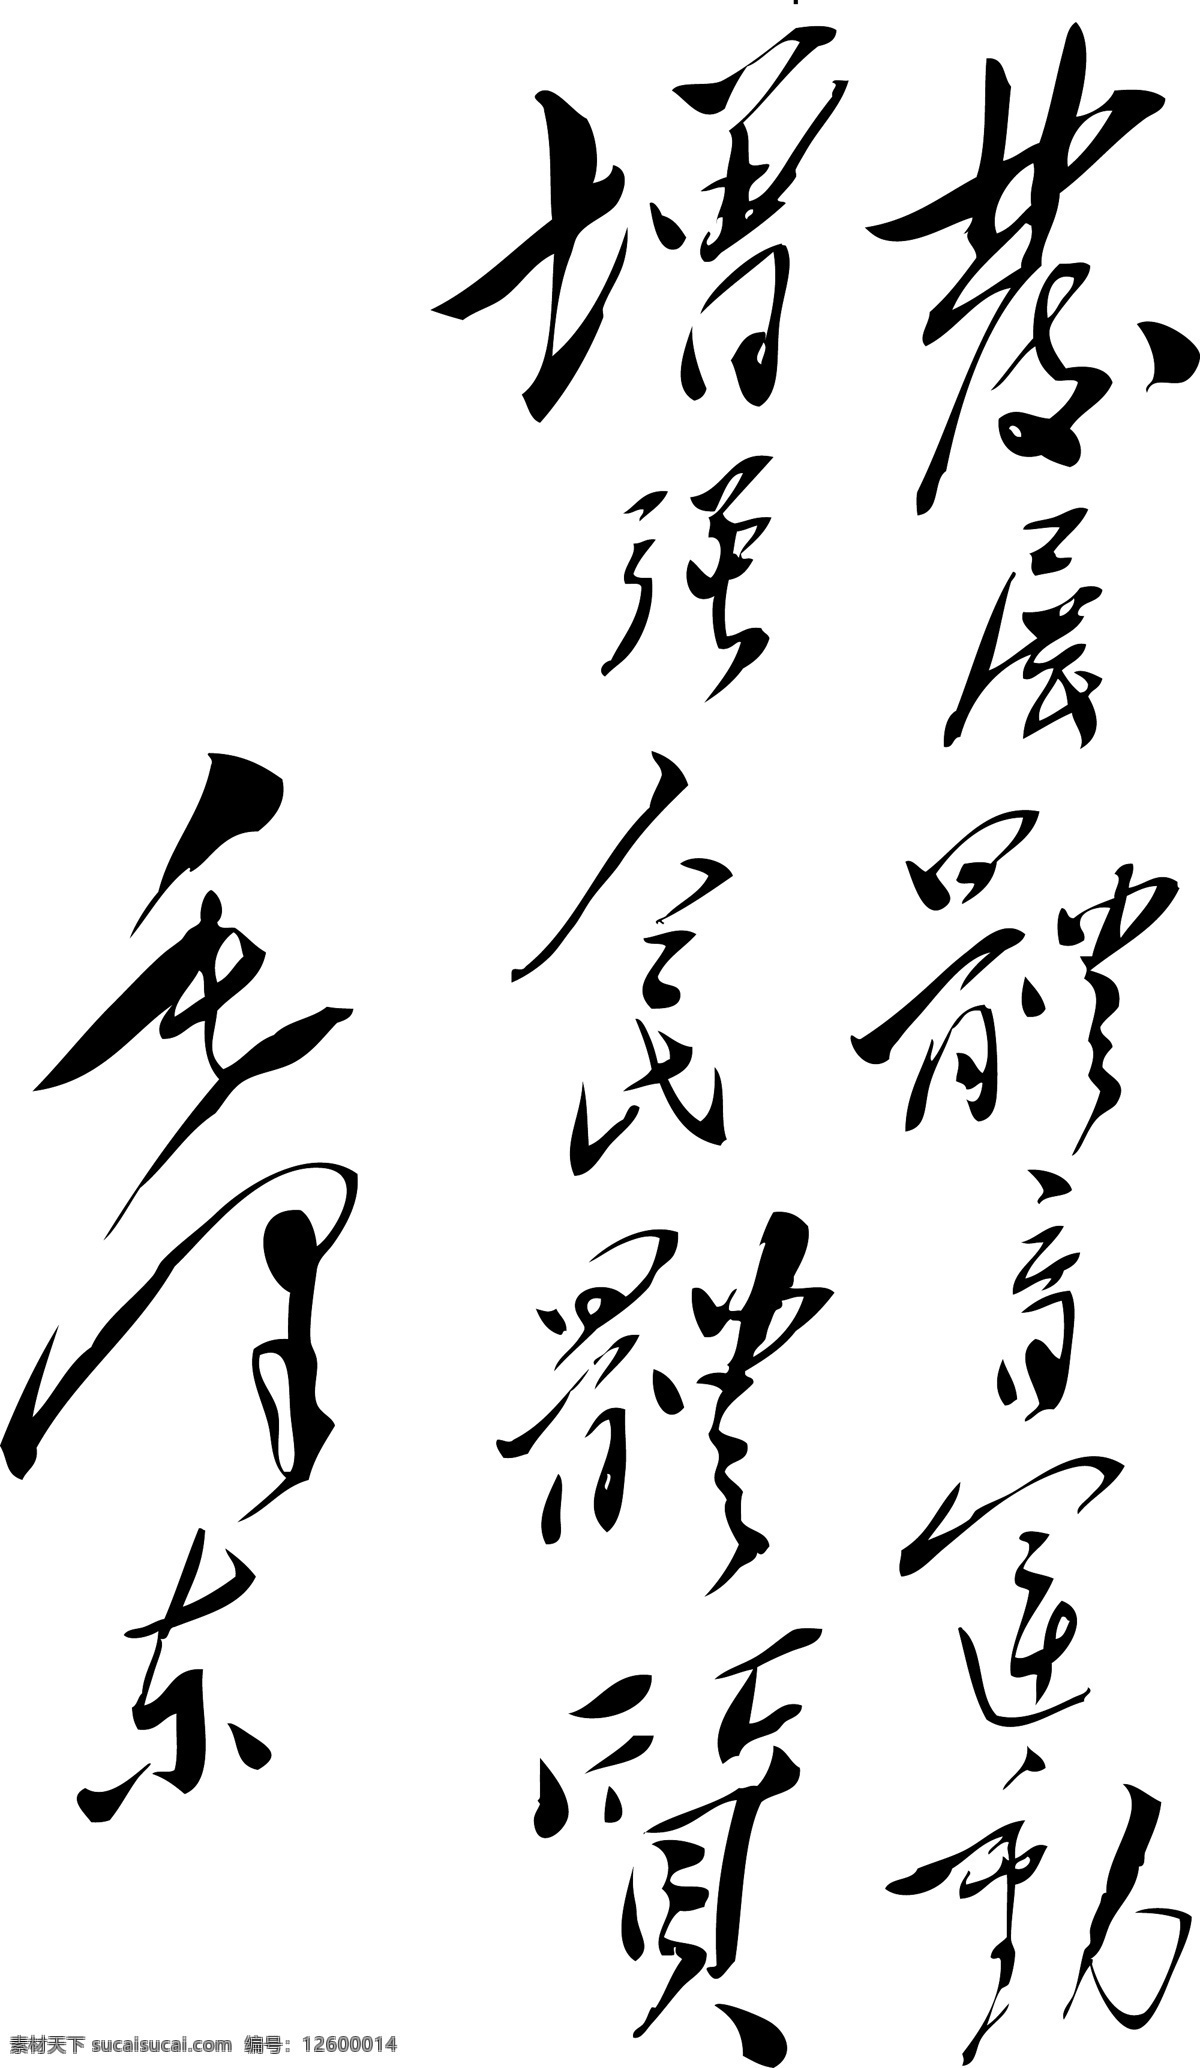 發展體育運動
增强人民體質
毛泽东
素材天下 sucaisucai.com 编号：12600014